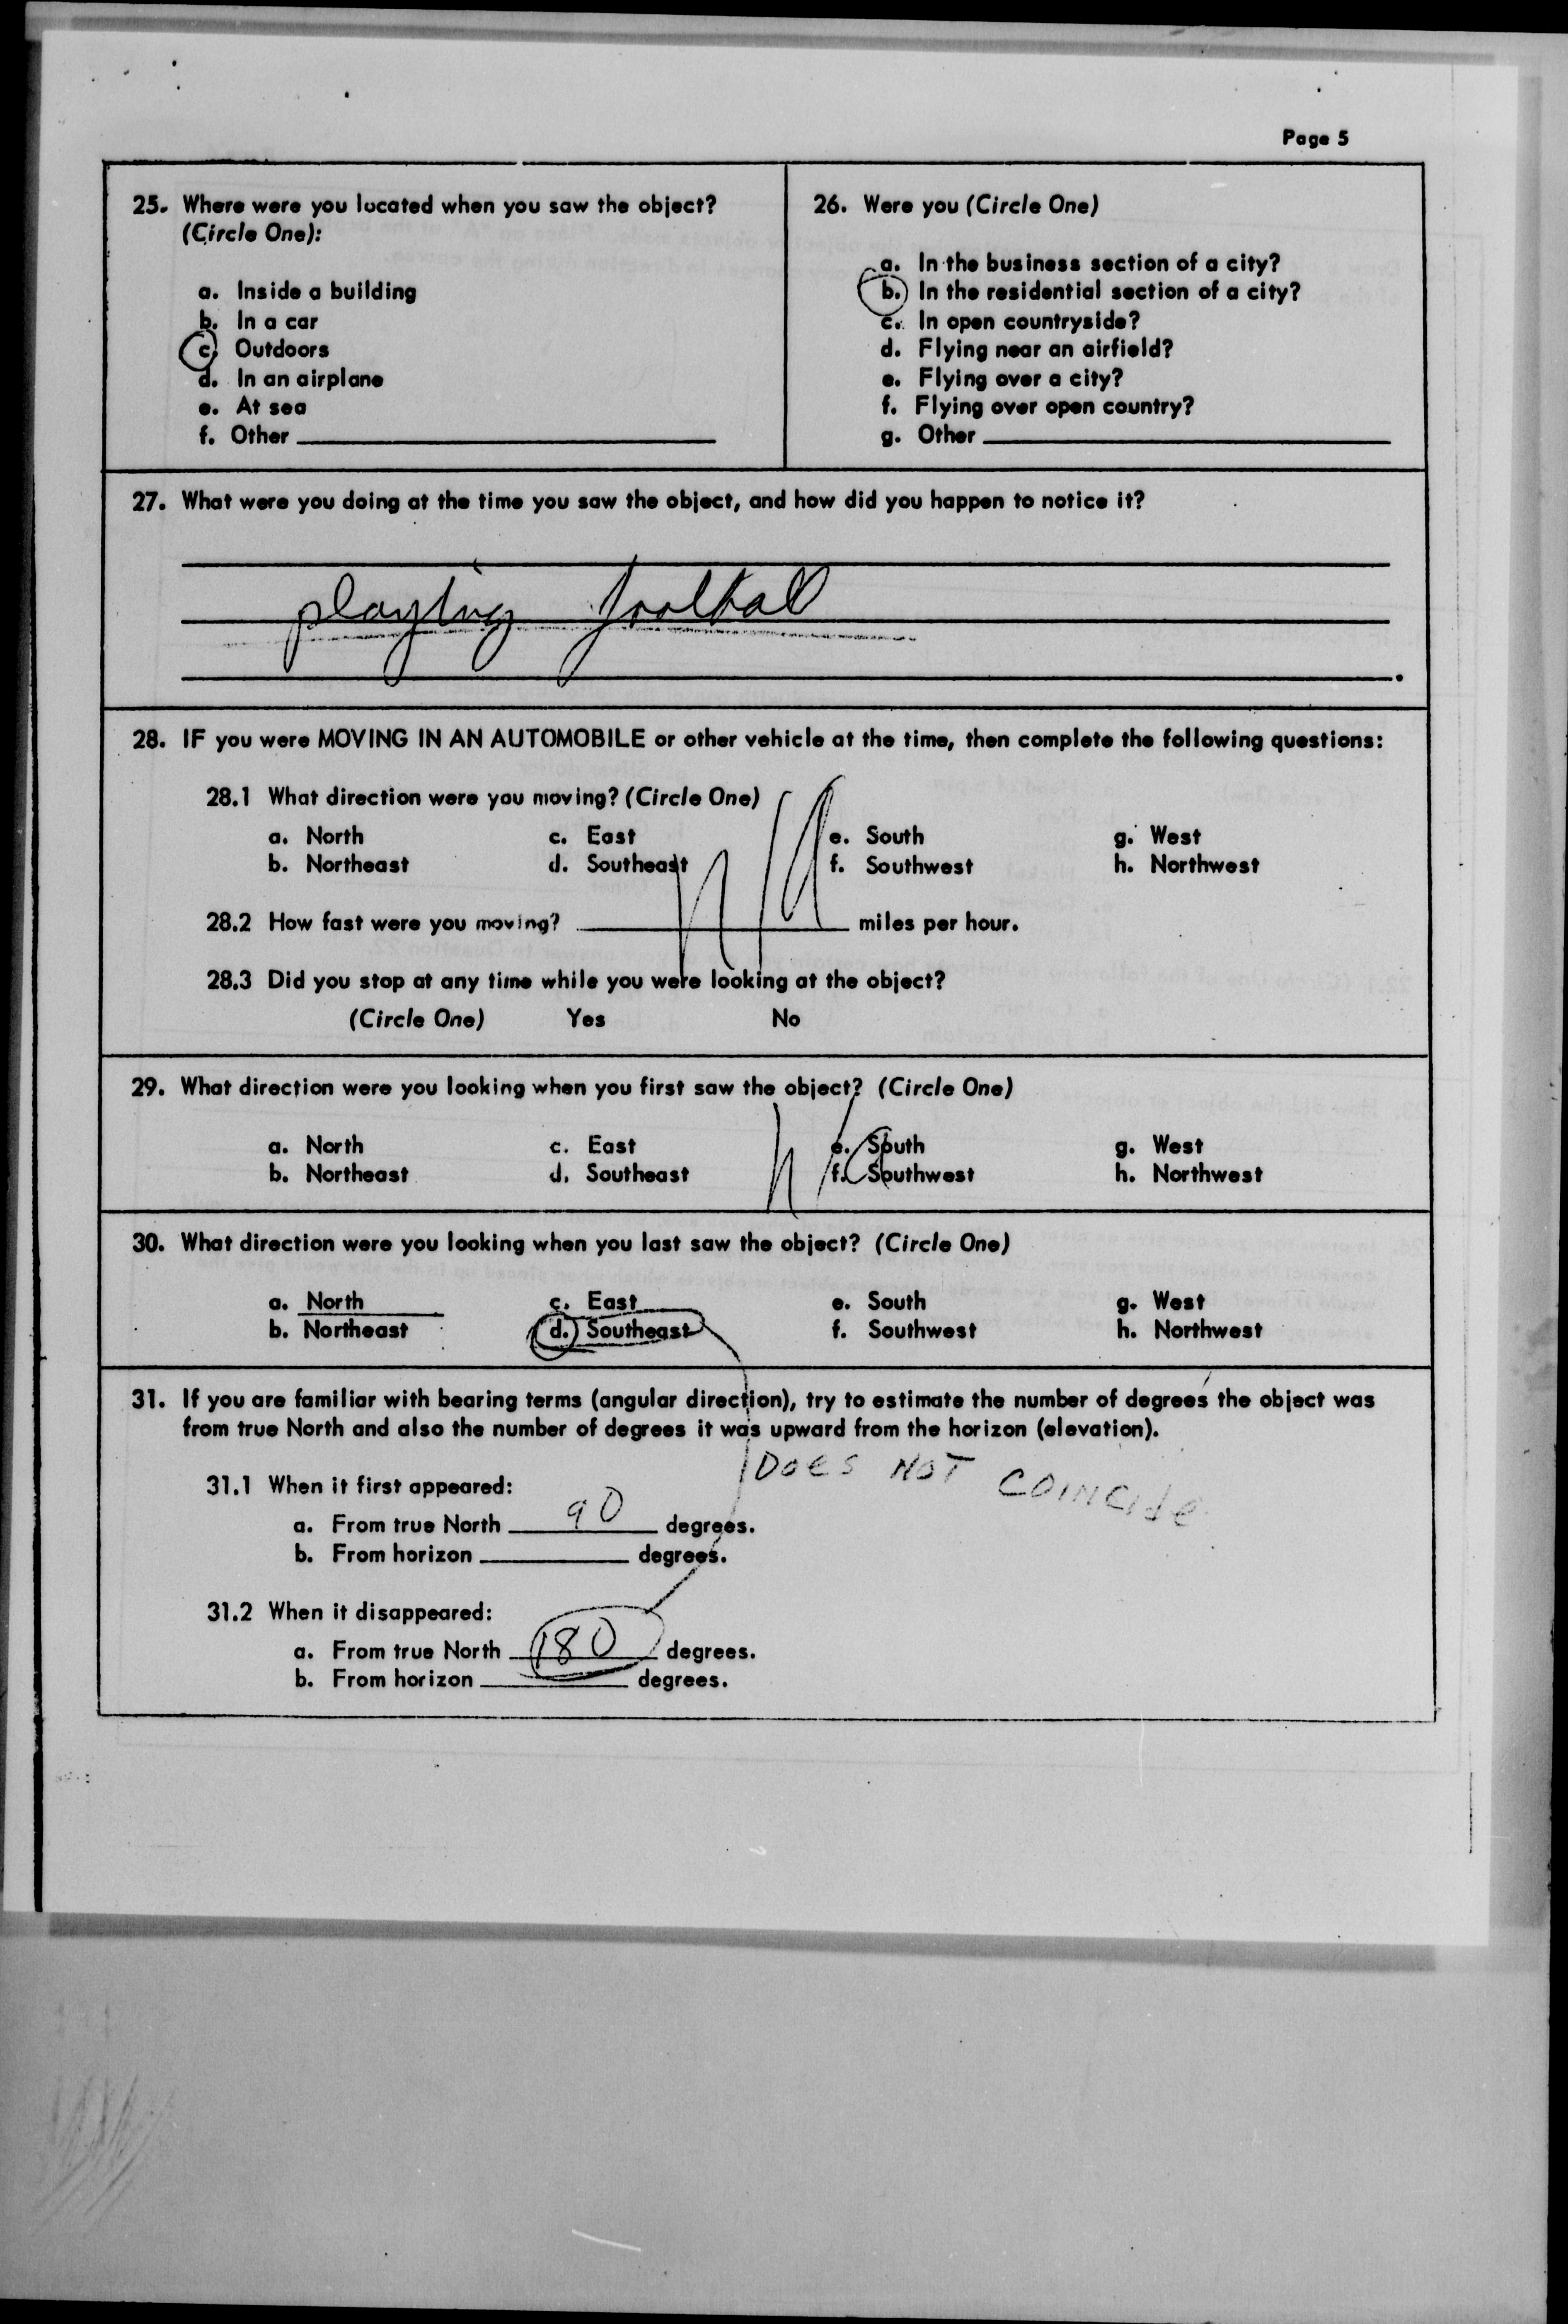 Page 5
25. Where were you located when you saw the object?
(Circle One):
a. Inside a building
b. In a car
c. Outdoors
d. In an airplane
e. At sea
f. Other
26. Were you (Circle One)
a. In the business section of a city?
b. In the residential section of a city?
c. In open countryside?
d. Flying near an airfield?
e. Flying over a city?
f. Flying over open country?
g. Other
27. What were you doing at the time you saw the object, and how did you happen to notice it?
playing football
28. IF you were MOVING IN AN AUTOMOBILE or other vehicle at the time, then complete the following questions:
28.1 What direction were you moving? (Circle One)
a. North c. East e. South g. West
b. Northeast d. Southeast f. Southwest h. Northwest
n/a
28.2 How fast were you moving? miles per hour.
28.3 Did you stop at any time while you were looking at the object?
(Circle One) Yes No
29. What direction were you looking when you first saw the object? (Circle One)
n/a
a. North c. East e. South g. West
b. Northeast d. Southeast f. Southwest h. Northwest
30. What direction were you looking when you last saw the object? (Circle One)
a. North c. East e. South g. West
b. Northeast d. Southeast f. Southwest h. Northwest
31. If you are familiar with bearing terms (angular direction), try to estimate the number of degrees the object was
from true North and also the number of degrees it was upward from the horizon (elevation).
DOES NOT COINCIDE
31.1 When it first appeared:
a. From true North 90 degrees.
b. From horizon degrees.
31.2 When it disappeared:
a. From true North 180 degrees.
b. From horizon degrees.